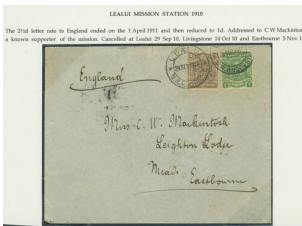 LEALUI MISSION STATION 1910
The 2½d letter rate to England ended on the 1 April 1911 and then reduced to 1d. Addressed to C W Mackintosh
a known supporter of the mission. Cancelled at Lealui 29 Sep 10, Livingstone 14 Oct 10 and Eastbourne 5 Nov 1
England
Miss C. W. Mackintosh
Leighton Lodge
Meads
Eastbourne